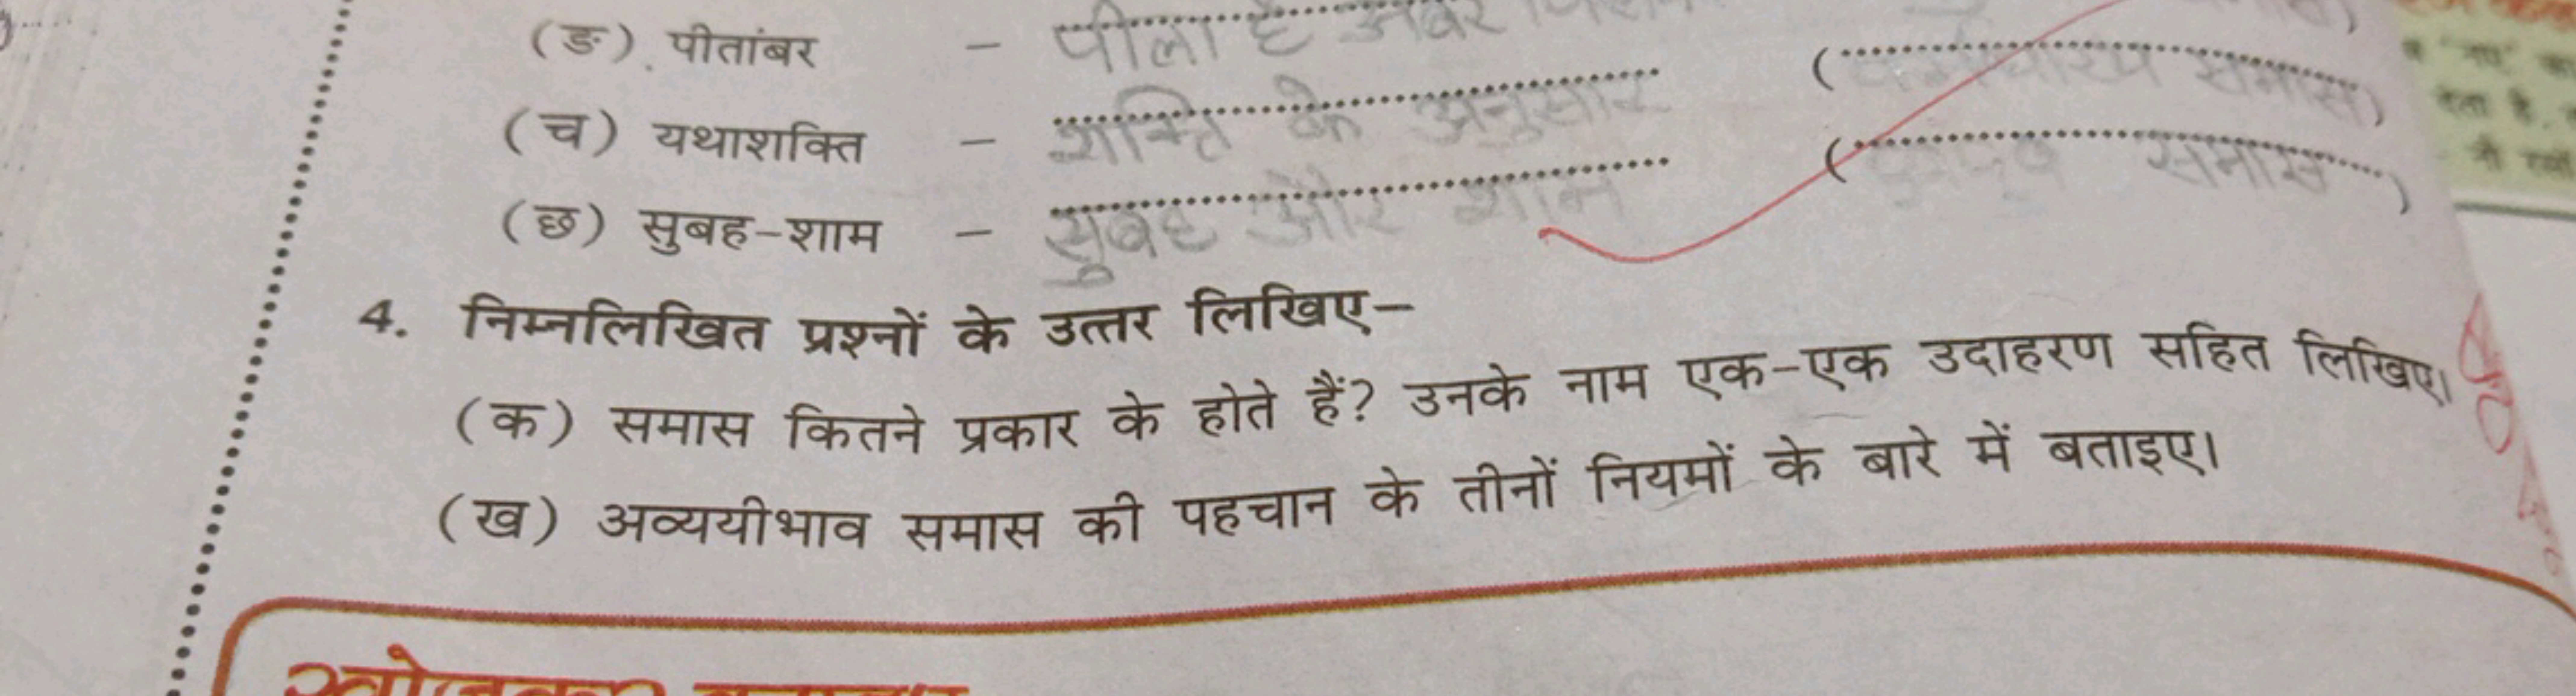 (ङ) पीतांबर - पीला है अंबर
(च) यथाशक्ति - शक्ति के अनुसार ( समास)
(छ) सुबह-शाम - सुबह और शाम ( समास )
4. निम्नलिखित प्रश्नों के उत्तर लिखिए-
(क) समास कितने प्रकार के होते हैं? उनके नाम एक-एक उदाहरण सहित लिखिए।
(ख) अव्ययीभाव समास की पहचान के तीनों नियमों के बारे में बताइए।